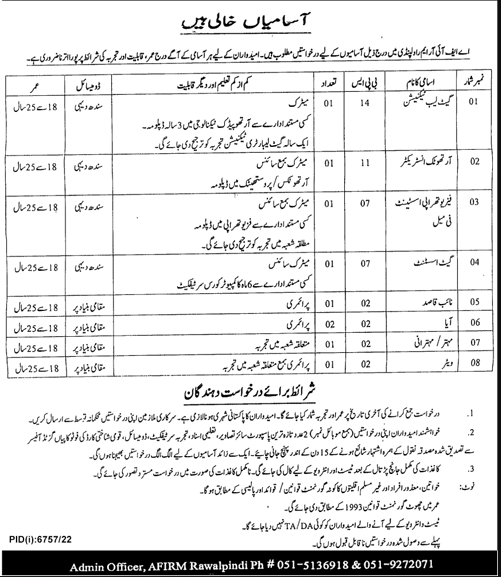 آسامیاں خالی ہیں
اے ایف آئی آر ایم راولپنڈی میں درج ذیل آسامیوں کے لیے درخواستیں مطلوب ہیں۔ امیدواران کے لیے ہر آسامی کے آگے درج عمر، قابلیت اور تجربہ کی شرائط پر پورا اترنا ضروری ہے۔
نمبر شمار اسامی کا نام بی پی ایس تعداد کم از کم تعلیم اور دیگر قابلیت ڈومیسائل عمر
01 گیٹ لیب ٹیکنیشن 14 01 میٹرک سندھ دیہی 18 سے 25 سال
کسی مستند ادارے سے آرتھوپیڈک ٹیکنالوجی میں 3 سالہ ڈپلومہ۔
ایک سالہ گیٹ لیبارٹری ٹیکنیشن تجربہ کو ترجیح دی جائے گی۔
02 آرتھوٹک انسٹریکٹر 11 01 میٹرک بمع سائنس سندھ دیہی 18 سے 25 سال
آرتھوٹکس / پروستھیٹک میں ڈپلومہ
03 فزیوتھراپی اسسٹینٹ فی میل 07 01 میٹرک بمع سائنس سندھ دیہی 18 سے 25 سال
کسی مستند ادارے سے فزیوتھراپی میں ڈپلومہ
متعلقہ شعبہ میں تجربہ کو ترجیح دی جائے گی۔
04 گیٹ اسسٹنٹ 07 01 میٹرک سائنس سندھ دیہی 18 سے 25 سال
کسی مستند ادارے سے 6 ماہ کا کمپیوٹر کورس سرٹیفکیٹ
05 نائب قاصد 02 01 پرائمری مقامی بنیاد پر 18 سے 25 سال
06 آیا 02 02 پرائمری مقامی بنیاد پر 18 سے 25 سال
07 مہتر / مہترانی 02 01 متعلقہ شعبہ میں تجربہ مقامی بنیاد پر 18 سے 25 سال
08 ویٹر 02 01 پرائمری بمع متعلقہ شعبہ میں تجربہ مقامی بنیاد پر 18 سے 25 سال
شرائط برائے درخواست دہندگان
1. درخواست جمع کرانے کی آخری تاریخ پر عمر اور تجربہ شمار کیا جائے گا۔ امیدواران کا پاکستانی شہری ہونا لازمی ہے۔ سرکاری ملازمین اپنی درخواستیں محکمانہ توسط سے ارسال کریں۔
2. خواہشمند امیدواران اپنی درخواستیں (بمع موبائل نمبر) 2 عدد تازہ ترین پاسپورٹ سائز تصاویر، تعلیمی اسناد، تجربہ سرٹیفکیٹ، ڈومیسائل، قومی شناختی کارڈ کی فوٹو کاپیاں گزٹڈ آفیسر
سے تصدیق شدہ مصدقہ نقول کے ہمراہ اشتہار شائع ہونے کے 15 دن کے اندر پہنچ جانی چاہئے۔ ایک سے زائد آسامیوں کے لیے الگ الگ درخواستیں بھیجنا ہوں گی۔
3. کاغذات کی مکمل جانچ پڑتال کے بعد ٹیسٹ اور انٹرویو کے لیے کال کی جائے گی۔ نامکمل کاغذات کی صورت میں درخواست مسترد تصور کی جائے گی۔
نوٹ: خواتین، معذور افراد اور غیر مسلم اقلیتوں کا کوٹہ گورنمنٹ قوانین / قواعد اور پالیسی کے مطابق ہوگا۔
عمر میں چھوٹ گورنمنٹ قوانین 1993 کے مطابق دی جائے گی۔
ٹیسٹ و انٹرویو کے لیے آنے والے امیدواران کو کوئی TA/DA نہیں دیا جائے گا۔
پہلے سے وصول شدہ درخواستیں ناقابل قبول ہوں گی۔
PID(i):6757/22
Admin Officer, AFIRM Rawalpindi Ph # 051-5136918 & 051-9272071